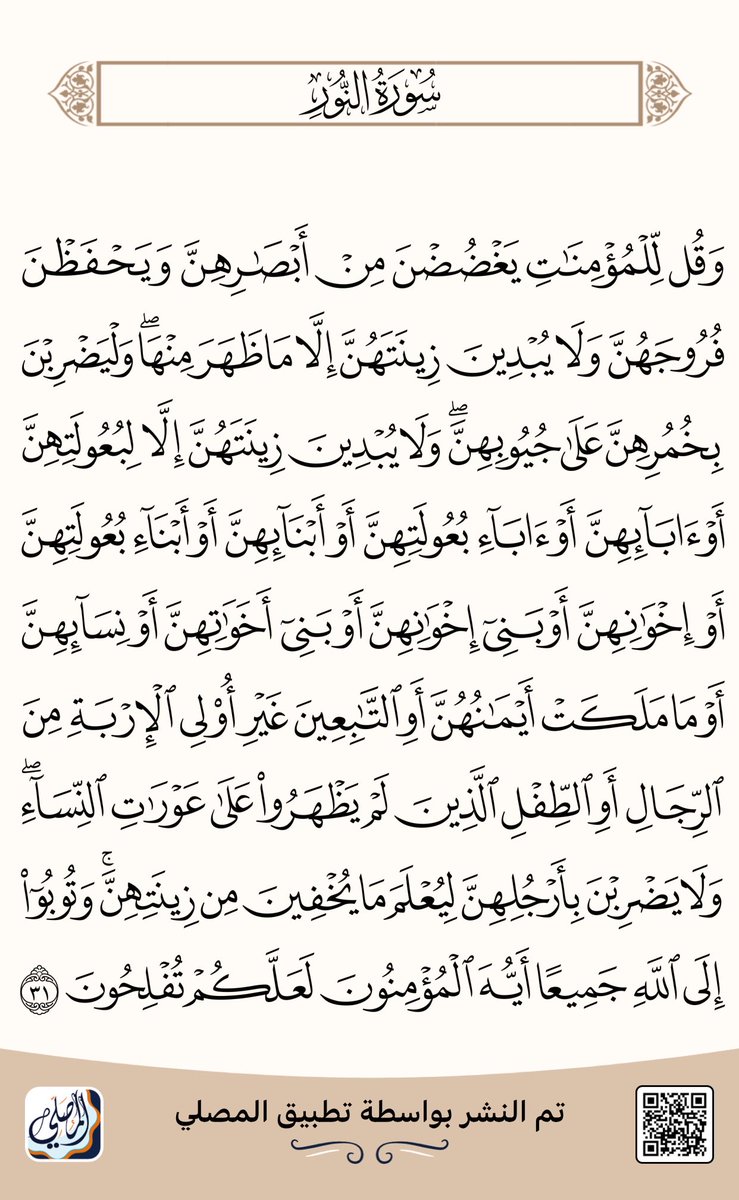 سُورَةُ النُّورِ
وَقُل لِّلْمُؤْمِنَٰتِ يَغْضُضْنَ مِنْ أَبْصَٰرِهِنَّ وَيَحْفَظْنَ
فُرُوجَهُنَّ وَلَا يُبْدِينَ زِينَتَهُنَّ إِلَّا مَا ظَهَرَ مِنْهَاۖ وَلْيَضْرِبْنَ
بِخُمُرِهِنَّ عَلَىٰ جُيُوبِهِنَّۖ وَلَا يُبْدِينَ زِينَتَهُنَّ إِلَّا لِبُعُولَتِهِنَّ
أَوْ ءَابَآئِهِنَّ أَوْ ءَابَآءِ بُعُولَتِهِنَّ أَوْ أَبْنَآئِهِنَّ أَوْ أَبْنَآءِ بُعُولَتِهِنَّ
أَوْ إِخْوَٰنِهِنَّ أَوْ بَنِىٓ إِخْوَٰنِهِنَّ أَوْ بَنِىٓ أَخَوَٰتِهِنَّ أَوْ نِسَآئِهِنَّ
أَوْ مَا مَلَكَتْ أَيْمَٰنُهُنَّ أَوِ ٱلتَّٰبِعِينَ غَيْرِ أُو۟لِى ٱلْإِرْبَةِ مِنَ
ٱلرِّجَالِ أَوِ ٱلطِّفْلِ ٱلَّذِينَ لَمْ يَظْهَرُوا۟ عَلَىٰ عَوْرَٰتِ ٱلنِّسَآءِۖ
وَلَا يَضْرِبْنَ بِأَرْجُلِهِنَّ لِيُعْلَمَ مَا يُخْفِينَ مِن زِينَتِهِنَّۚ وَتُوبُوٓا۟
إِلَى ٱللَّهِ جَمِيعًا أَيُّهَ ٱلْمُؤْمِنُونَ لَعَلَّكُمْ تُفْلِحُونَ ٣١
تم النشر بواسطة تطبيق المصلي
المصلي